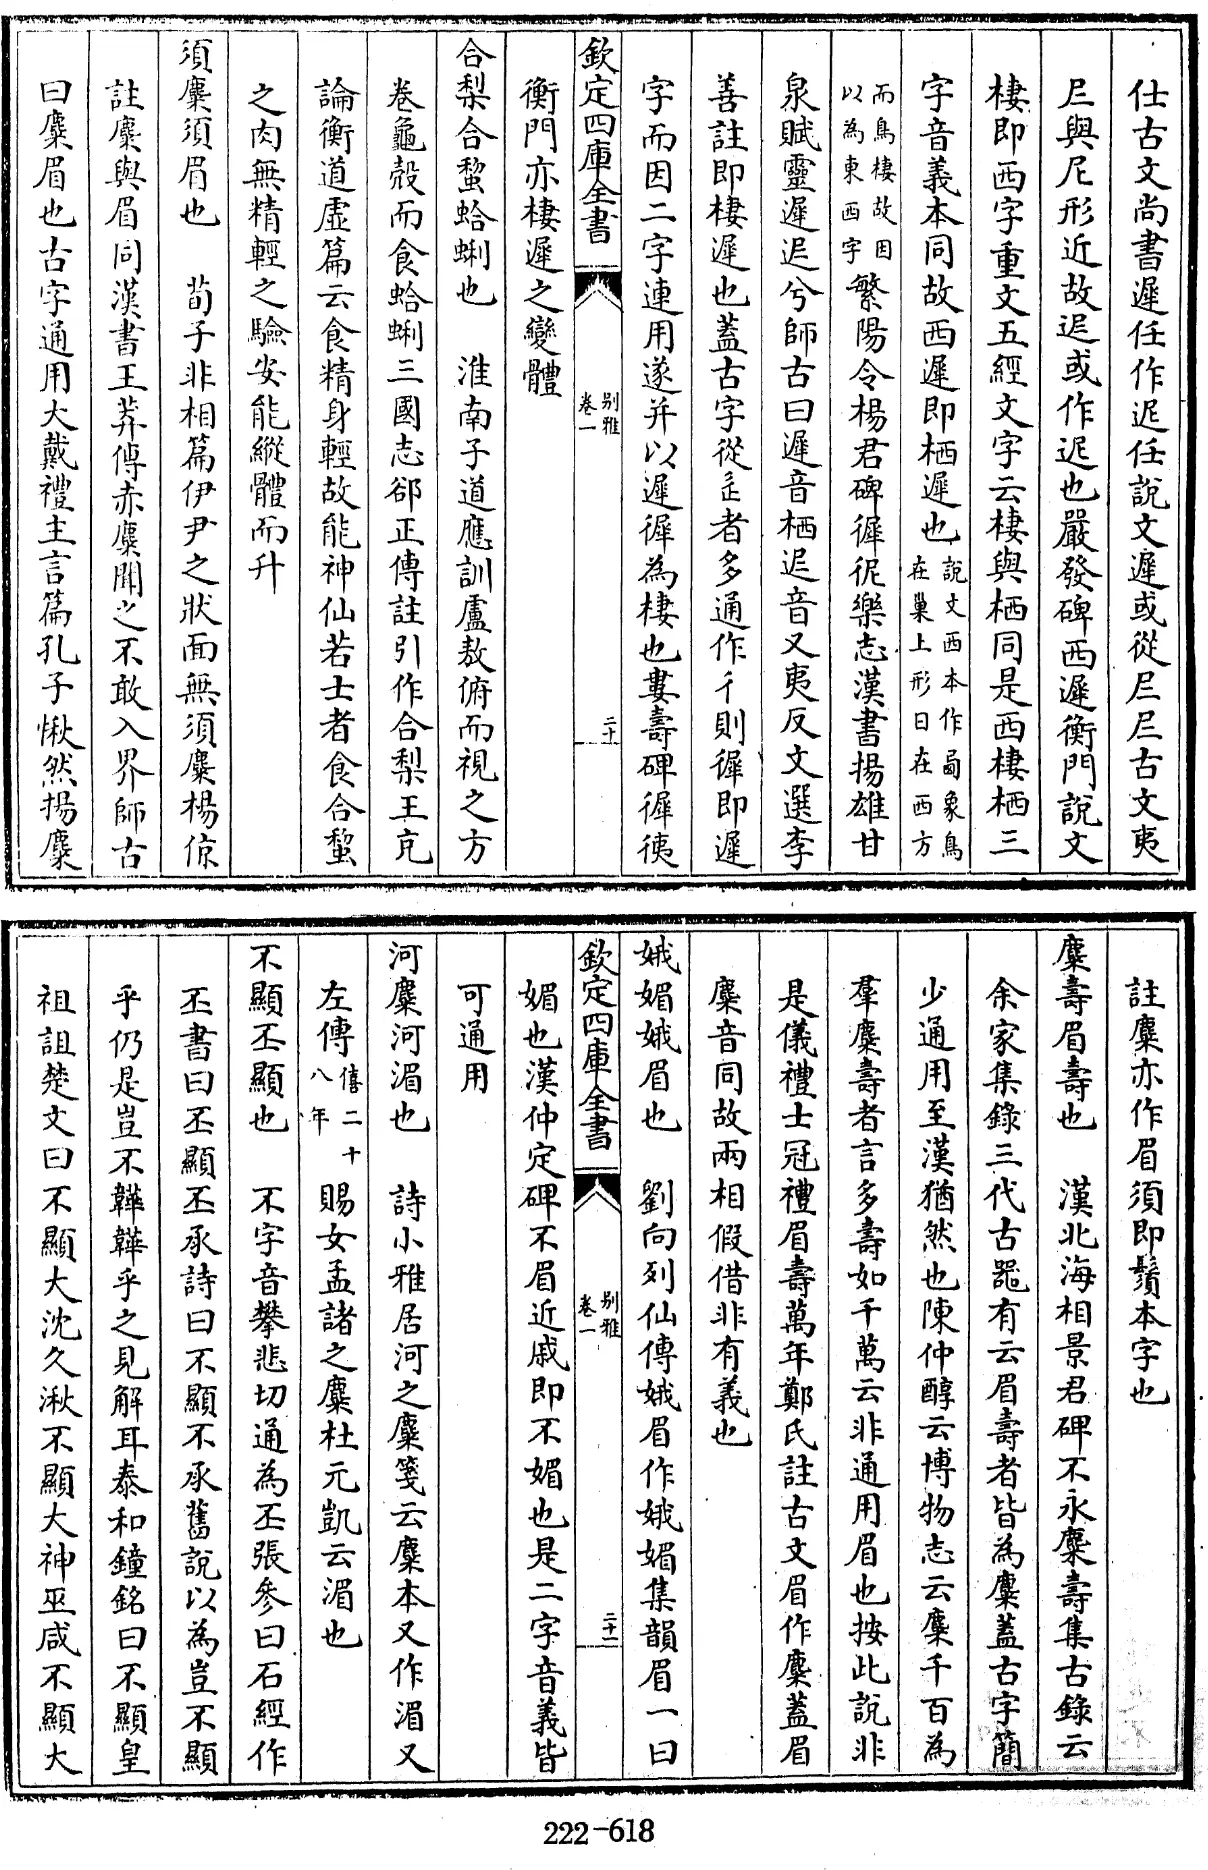 仕古文尚書遟任作迡任說文遲或從𡰥𡰥古文夷
𡰥與尼形近故𨒈或作迡也嚴發碑西遲衡門說文
棲即西字重文五經文字云棲與栖同是西棲栖三
字音義本同故西遲即栖遲也說文西本作㢴象鳥
在巢上形日在西方
而鳥棲故因
以為東西字繁陽令楊君碑徲𢓡樂志漢書揚雄甘
泉賦靈遲迡兮師古曰遲音栖迡音又夷反文選李
善註即棲遲也蓋古字從辵者多通作彳則徲即遲
字而因二字連用遂并以遲徲為棲也婁壽碑徲𢓡
欽定四庫全書
别雅
卷一
二十
衡門亦棲遲之變體
合梨合蜊蛤蜊也 淮南子道應訓盧敖俯而視之方
卷龜殼而食蛤蜊三國志郤正傳註引作合梨王充
論衡道虛篇云食精身輕故能神仙若士者食合蜊
之肉無精輕之驗安能縱體而升
須麋須眉也 荀子非相篇伊尹之狀面無須麋楊倞
註麋與眉同漢書王莽傳赤麋聞之不敢入界師古
曰麋眉也古字通用大戴禮主言篇孔子愀然揚麋
註麋亦作眉須即鬚本字也
麋壽眉壽也 漢北海相景君碑不永麋壽集古錄云
余家集錄三代古器有云眉壽者皆為麋蓋古字簡
少通用至漢猶然也陳仲醇云博物志云麋千百為
羣麋壽者言多壽如千萬云非通用眉也按此說非
是儀禮士冠禮眉壽萬年鄭氏註古文眉作麋蓋眉
麋音同故兩相假借非有義也
娥媚娥眉也 劉向列仙傳娥眉作娥媚集韻眉一曰
欽定四庫全書
别雅
卷一
二十一
媚也漢仲定碑不眉近戚即不媚也是二字音義皆
可通用
河麋河湄也 詩小雅居河之麋箋云麋本又作湄又
左傳僖二十
八年賜女孟諸之麋杜元凱云湄也
不顯丕顯也 不字音攀悲切通為丕張參曰石經作
丕書曰丕顯丕承詩曰不顯不承舊說以為豈不顯
乎仍是豈不韡韡乎之見解耳泰和鐘銘曰不顯皇
祖詛楚文曰不顯大沈久湫不顯大神巫咸不顯大
222-618